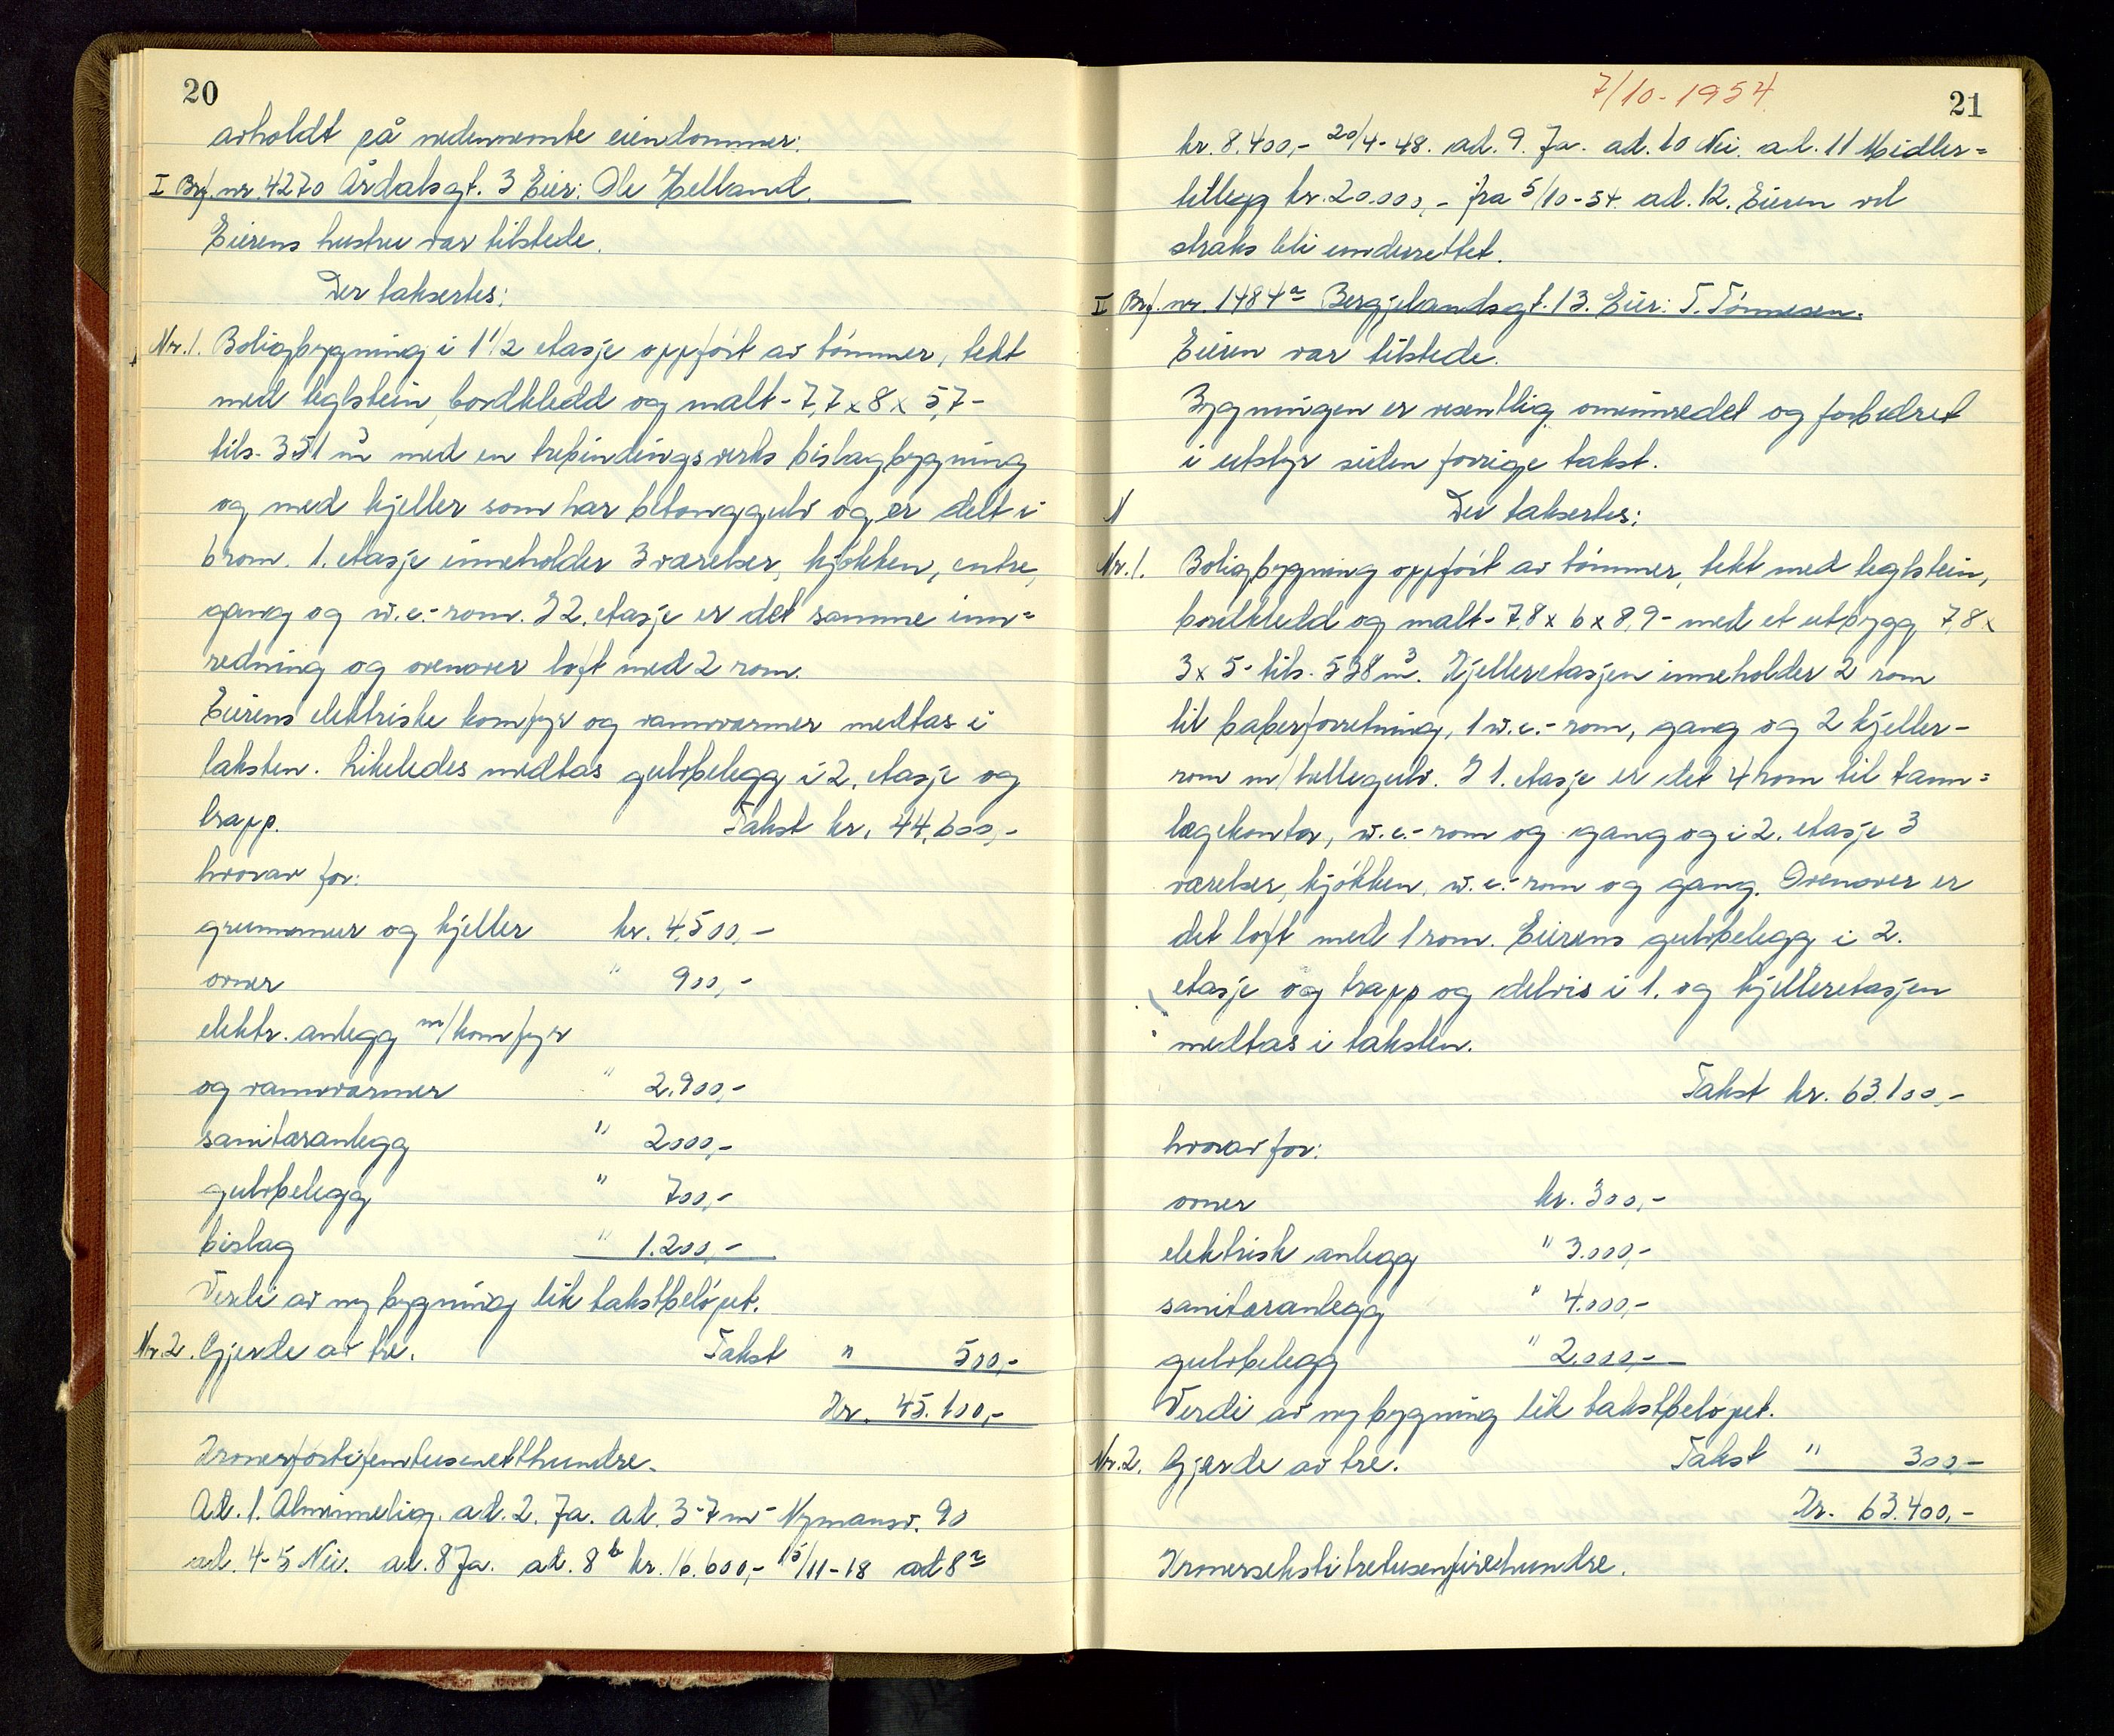 20
avholdt på nedennevnte eiendommer:
I Brf. nr. 4270 Årdalsgt. 3 Eier: Ole Helland.
Eierens hustru var tilstede.
Der taksertes:
Nr. 1. Boligbygning i 1 1/2 etasje oppført av tømmer, tekt
med teglstein, bordkledd og malt - 7,7 x 8 x 5,7 -
tils. 351 m³ med en trebindingsverks bislagbygning
og med kjeller som har betonggulv og er delt i
6 rom. 1. etasje inneholder 3 værelser, kjøkken, entre,
gang og w.c.-rom. I 2. etasje er det samme inn=
redning og ovenover loft med 2 rom.
Eierens elektriske komfyr og vannvarmer medtas i
taksten. Likeledes medtas gulvbelegg i 2. etasje og
trapp. Takst kr. 44.600,-
hvorav for:
grunnmur og kjeller kr. 4.500,-
ovner " 900,-
elektr. anlegg m/komfyr
og vannvarmer " 2.900,-
sanitæranlegg " 2000,-
gulvbelegg " 700,-
bislag " 1.200,-
Verdi av ny bygning lik takstbeløpet.
Nr. 2. Gjerde av tre. Takst " 500,-
Kr. 45.100,-
Kronerførtifemtusenetthundre.
Ad. 1. Alminnelig. ad. 2. Ja. ad. 3-7 m- Nymansv. 90
ad. 4-5 Nei. ad. 8 Ja. ad. 8b kr. 16.600,- 15/11-18 ad 8a
7/10-1954.
21
kr. 8.400,- 20/4-48. ad. 9. Ja. ad. 10 Nei. ad. 11 Midler=
tillegg kr. 20.000,- fra 5/10-54. ad. 12. Eieren vil
straks bli underrettet.
II Brf. nr. 1484a Bergjelandsgt. 13. Eier: T. Tønnesen.
Eieren var tilstede.
Bygningen er vesentlig ominnredet og forbedret
i utstyr siden forrige takst.
Der taksertes:
Nr. 1. Boligbygning oppført av tømmer, tekt med teglstein,
bordkledd og malt - 7,8 x 6 x 8,9 - med et utbygg 7,8 x
3 x 5 - tils. 538 m³. Kjelleretasjen inneholder 2 rom
til paperforretning, 1 w.c.-rom, gang og 2 kjeller-
rom m/hellegulv. I 1. etasje er det 4 rom til tann=
legekontor, w.c.-rom og gang og i 2. etasje 3
værelser, kjøkken, w.c.-rom og gang. Ovenover er
det loft med 1 rom. Eierens gulvbelegg i 2.
etasje og trapp og delvis i 1. og kjelleretasjen
medtas i taksten.
Takst kr. 63.100,-
hvorav for:
ovner kr. 300,-
elektrisk anlegg " 3.000,-
sanitæranlegg " 4.000,-
gulvbelegg " 2.000,-
Verdi av ny bygning lik takstbeløpet.
Nr. 2. Gjerde av tre. Takst " 300,-
Kr. 63.400,-
Kronersekstitretusenfirehundre.